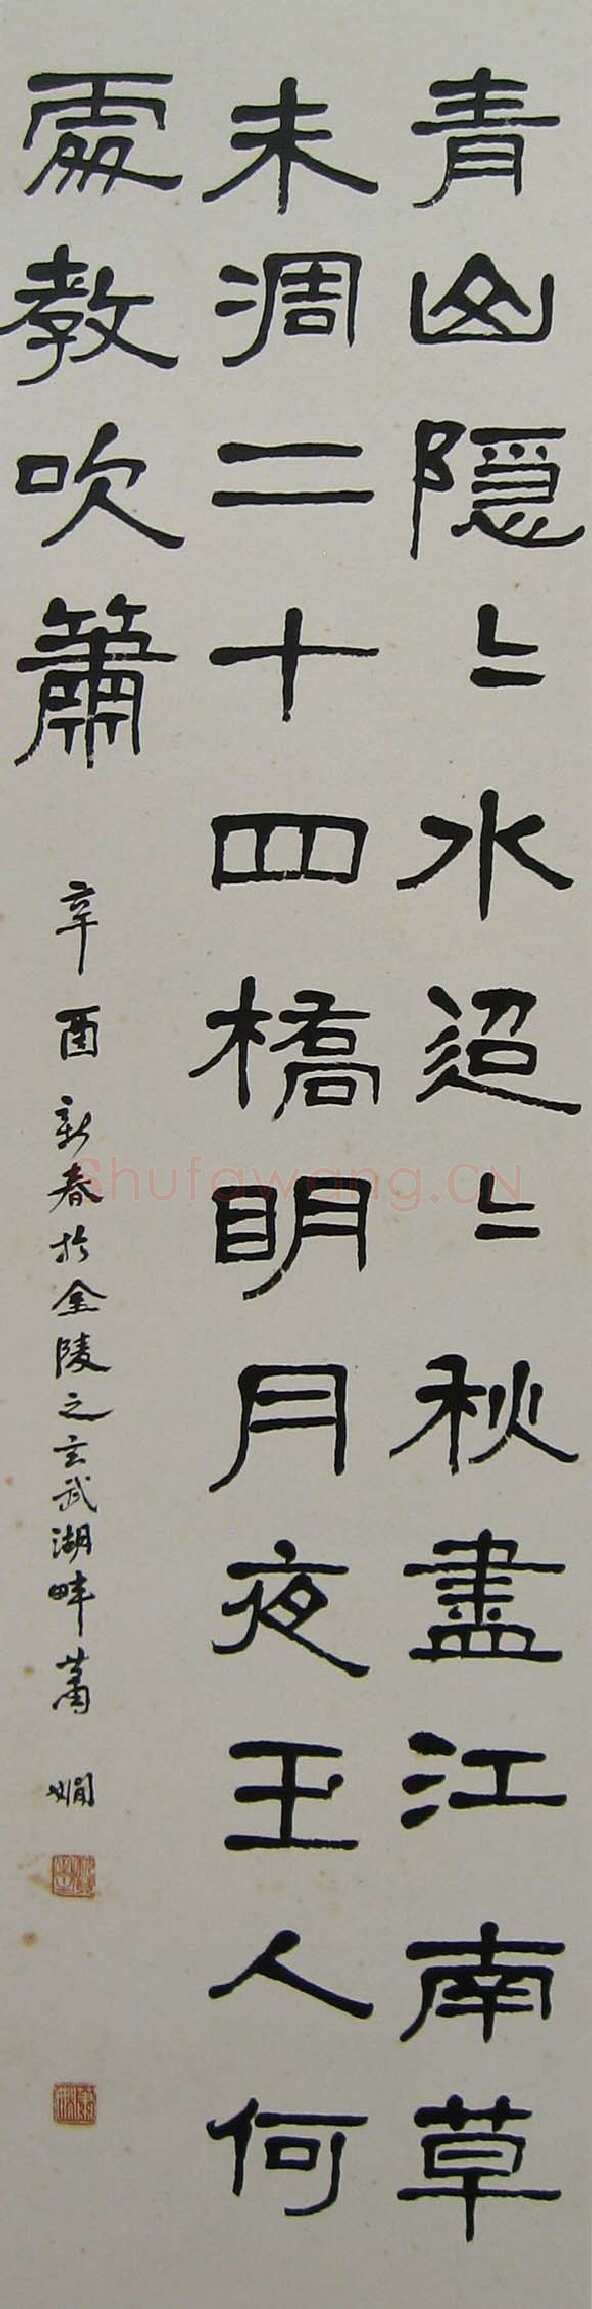 青山隱〻水迢〻秋盡江南草
未凋二十四橋明月夜玉人何
處教吹簫
辛酉新春於金陵之玄武湖畔蕭嫻
Shufawang.CN